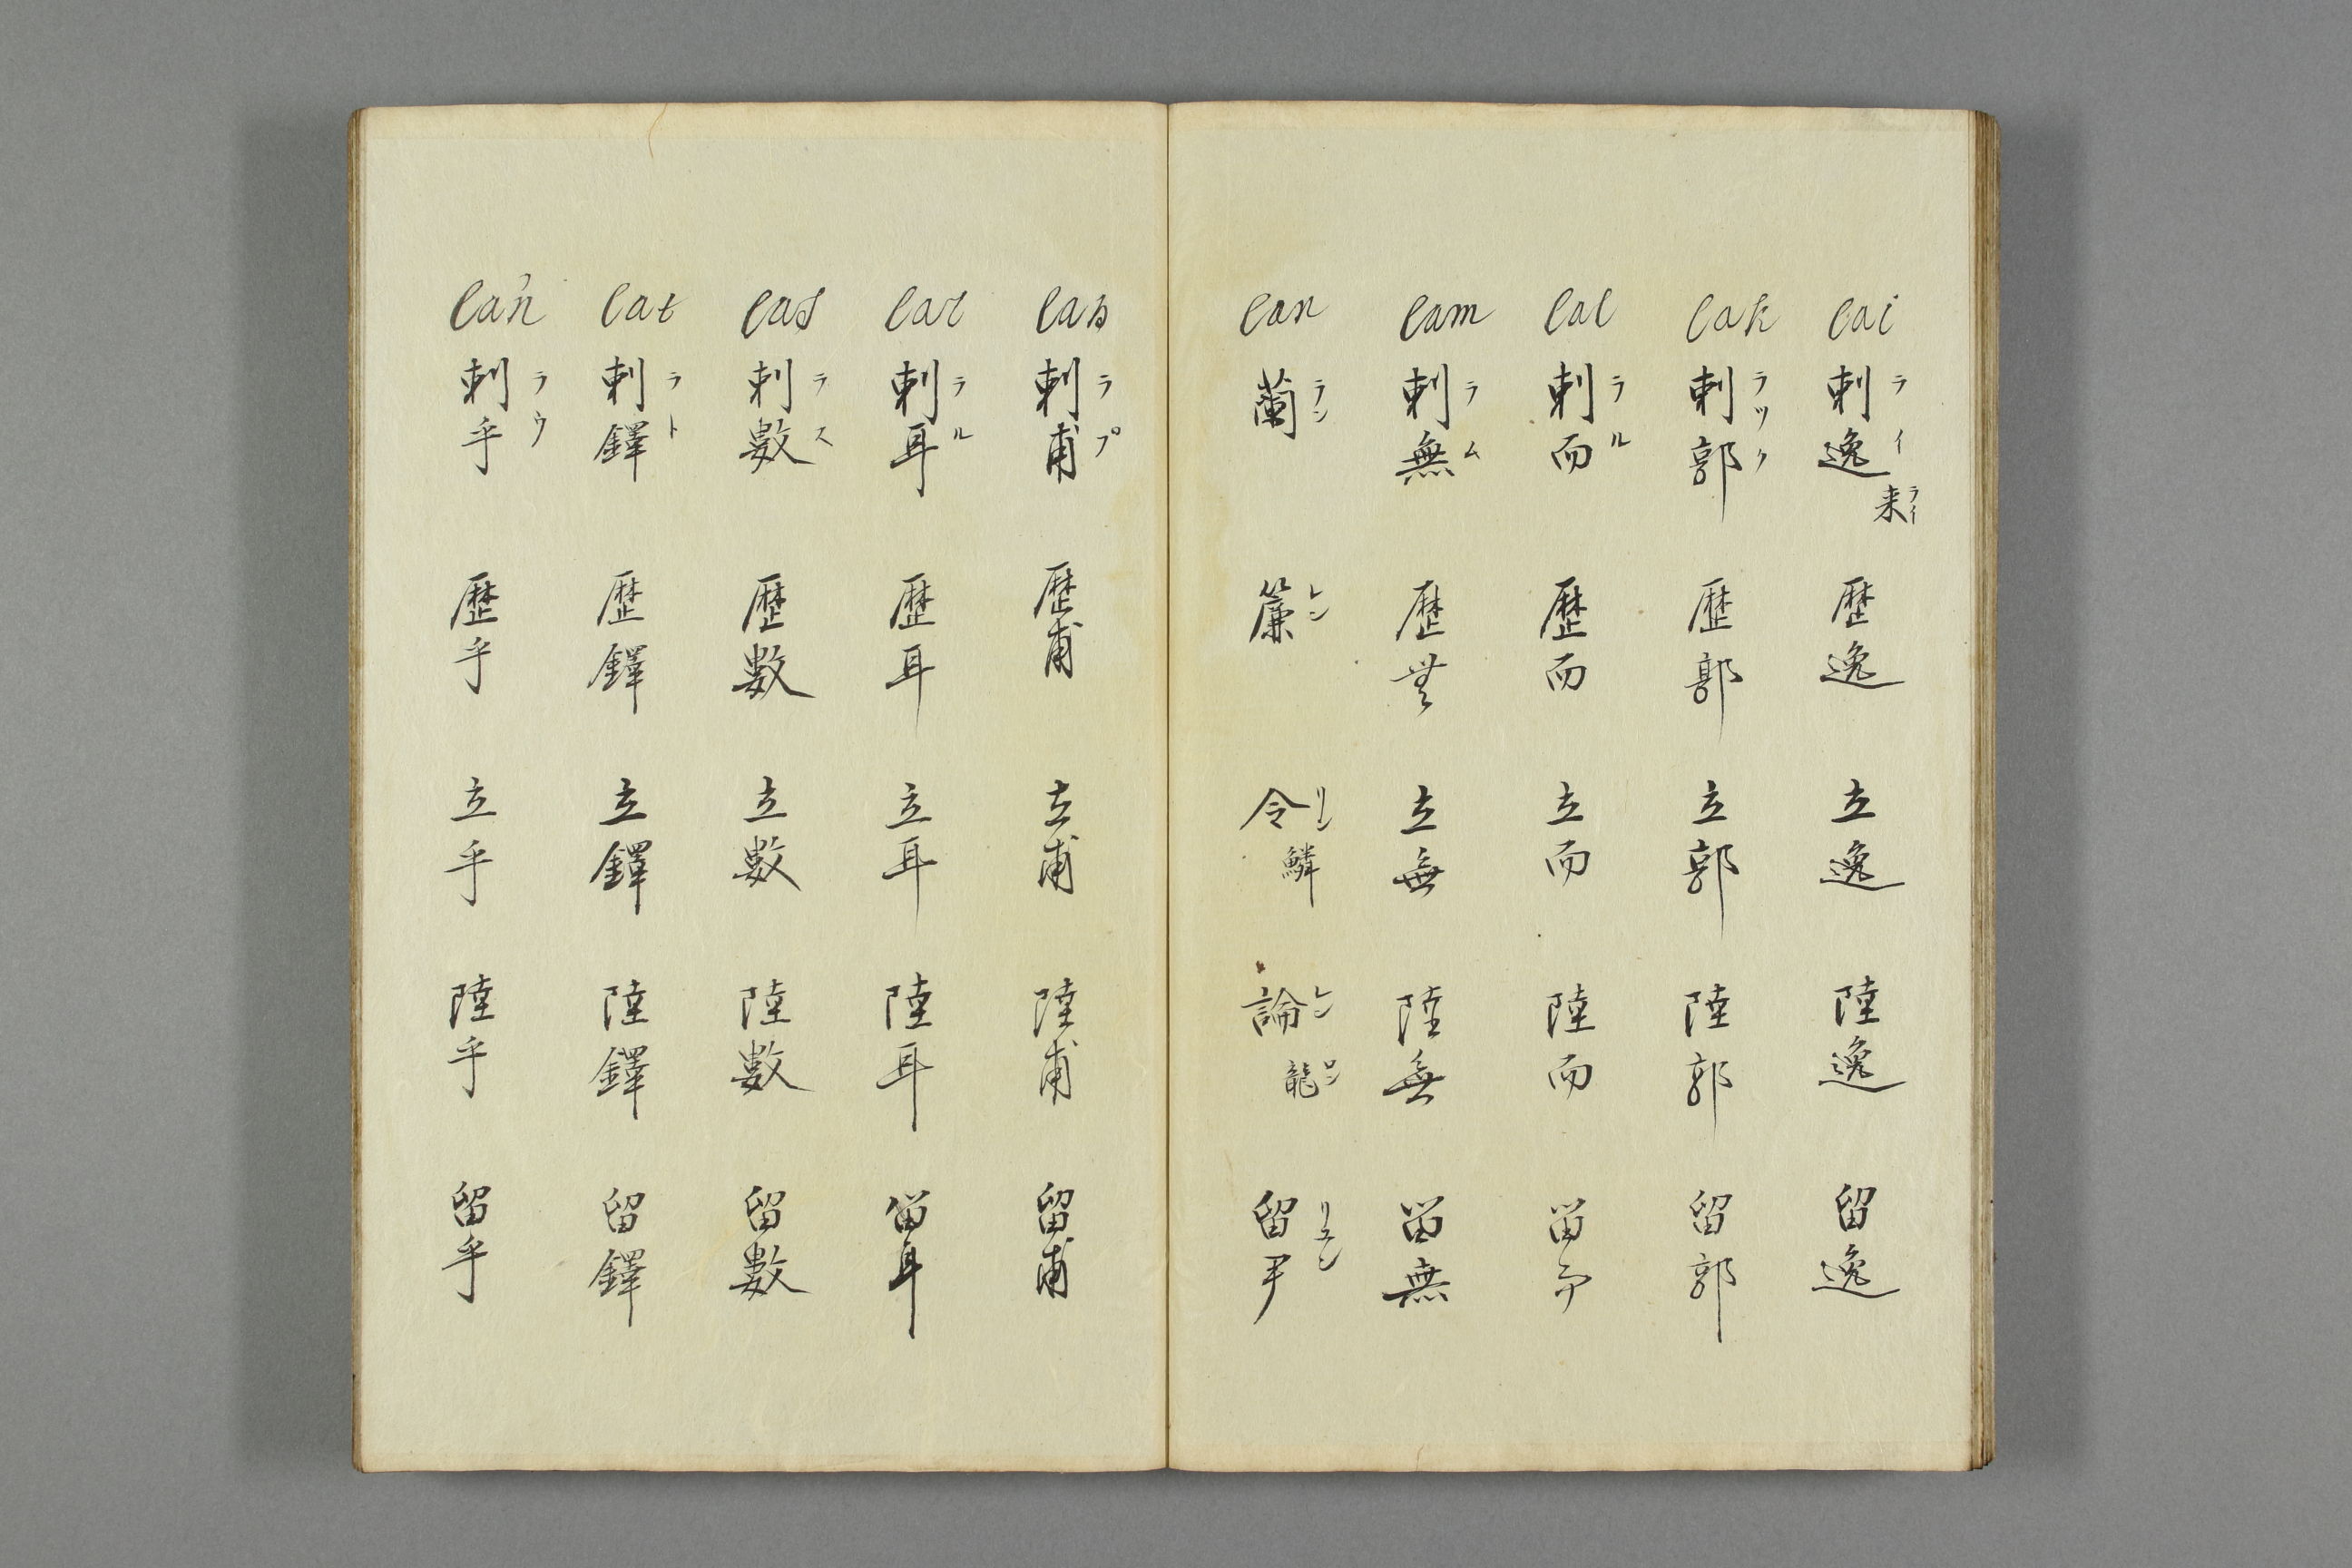 lai 剌逸 ライ 来 ライ 歴逸 立逸 陸逸 留逸
lak 剌郭 ラツク 歴郭 立郭 陸郭 留郭
lal 剌而 ラル 歴而 立而 陸而 留而
lam 剌無 ラム 歴無 立無 陸無 留無
lan 蘭 ラン 簾 レン 令 リン 鱗 論 レン 龍 ロン 留尹 リユン
lap 剌甫 ラプ 歴甫 立甫 陸甫 留甫
lar 剌耳 ラル 歴耳 立耳 陸耳 留耳
las 剌數 ラス 歴數 立數 陸數 留數
lat 剌鐸 ラト 歴鐸 立鐸 陸鐸 留鐸
剌乎 ラウ 歴乎 立乎 陸乎 留乎